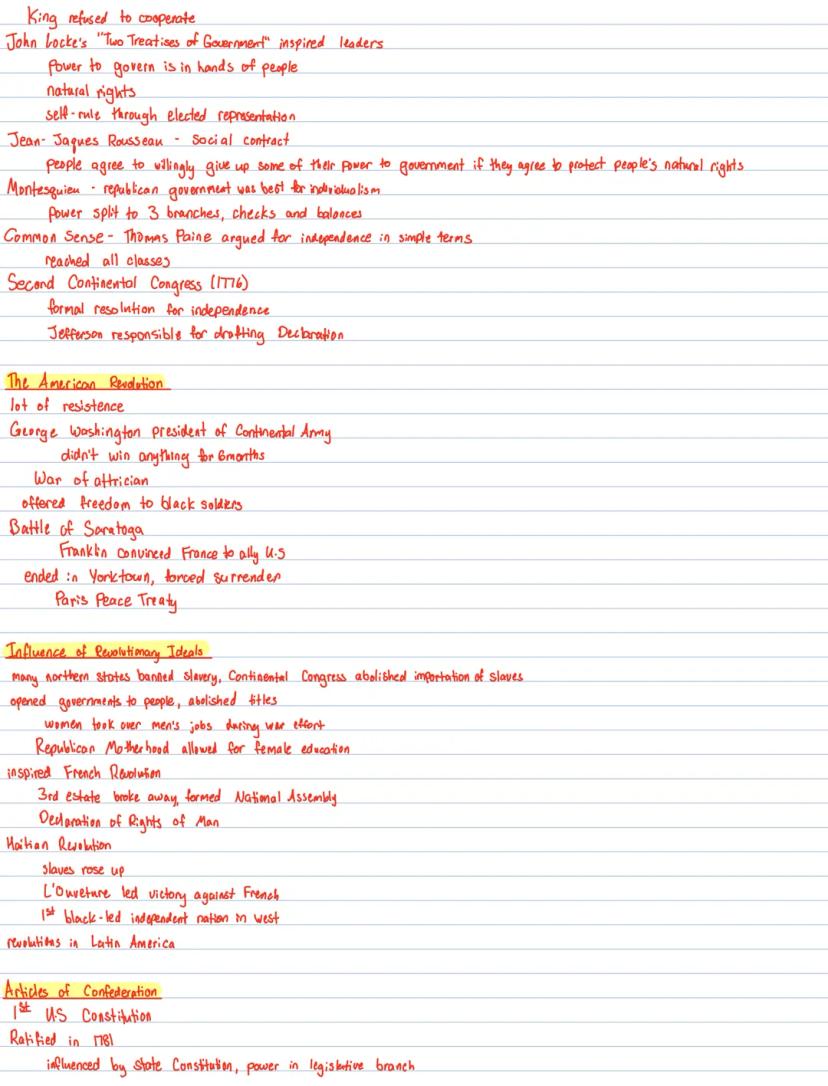 King refused to cooperate
John Locke's "Two Treatises of Government" inspired leaders
Power to govern is in hands of people
natural rights
self-rule through elected representation
Jean-Jaques Rousseau - Social contract
People agree to willingly give up some of their power to government if they agree to protect people's natural rights
Montesquieu - republican government was best for individualism
Power split to 3 branches, checks and balances
Common Sense - Thomas Paine argued for independence in simple terms
reached all classes
Second Continental Congress (1776)
formal resolution for independence
Jefferson responsible for drafting Declaration
The American Revolution
lot of resistence
George Washington president of Continental Army
didn't win anything for 6months
War of attrician
offered freedom to black soldiers
Battle of Saratoga
Franklin convinced France to ally U.S
ended in Yorktown, forced surrender
Paris Peace Treaty
Influence of Revolutionary Ideals
many northern states banned slavery, Continental Congress abolished importation of slaves
opened governments to people, abolished titles
women took over men's jobs during war effort
Republican Motherhood allowed for female education
inspired French Revolution
3rd estate broke away, formed National Assembly
Declaration of Rights of Man
Haitian Revolution
slaves rose up
L'Ouveture led victory against French
1st black-led independent nation in west
revolutions in Latin America
Articles of Confederation
1st U.S Constitution
Ratified in 1781
influenced by State Constitution, power in legislative branch